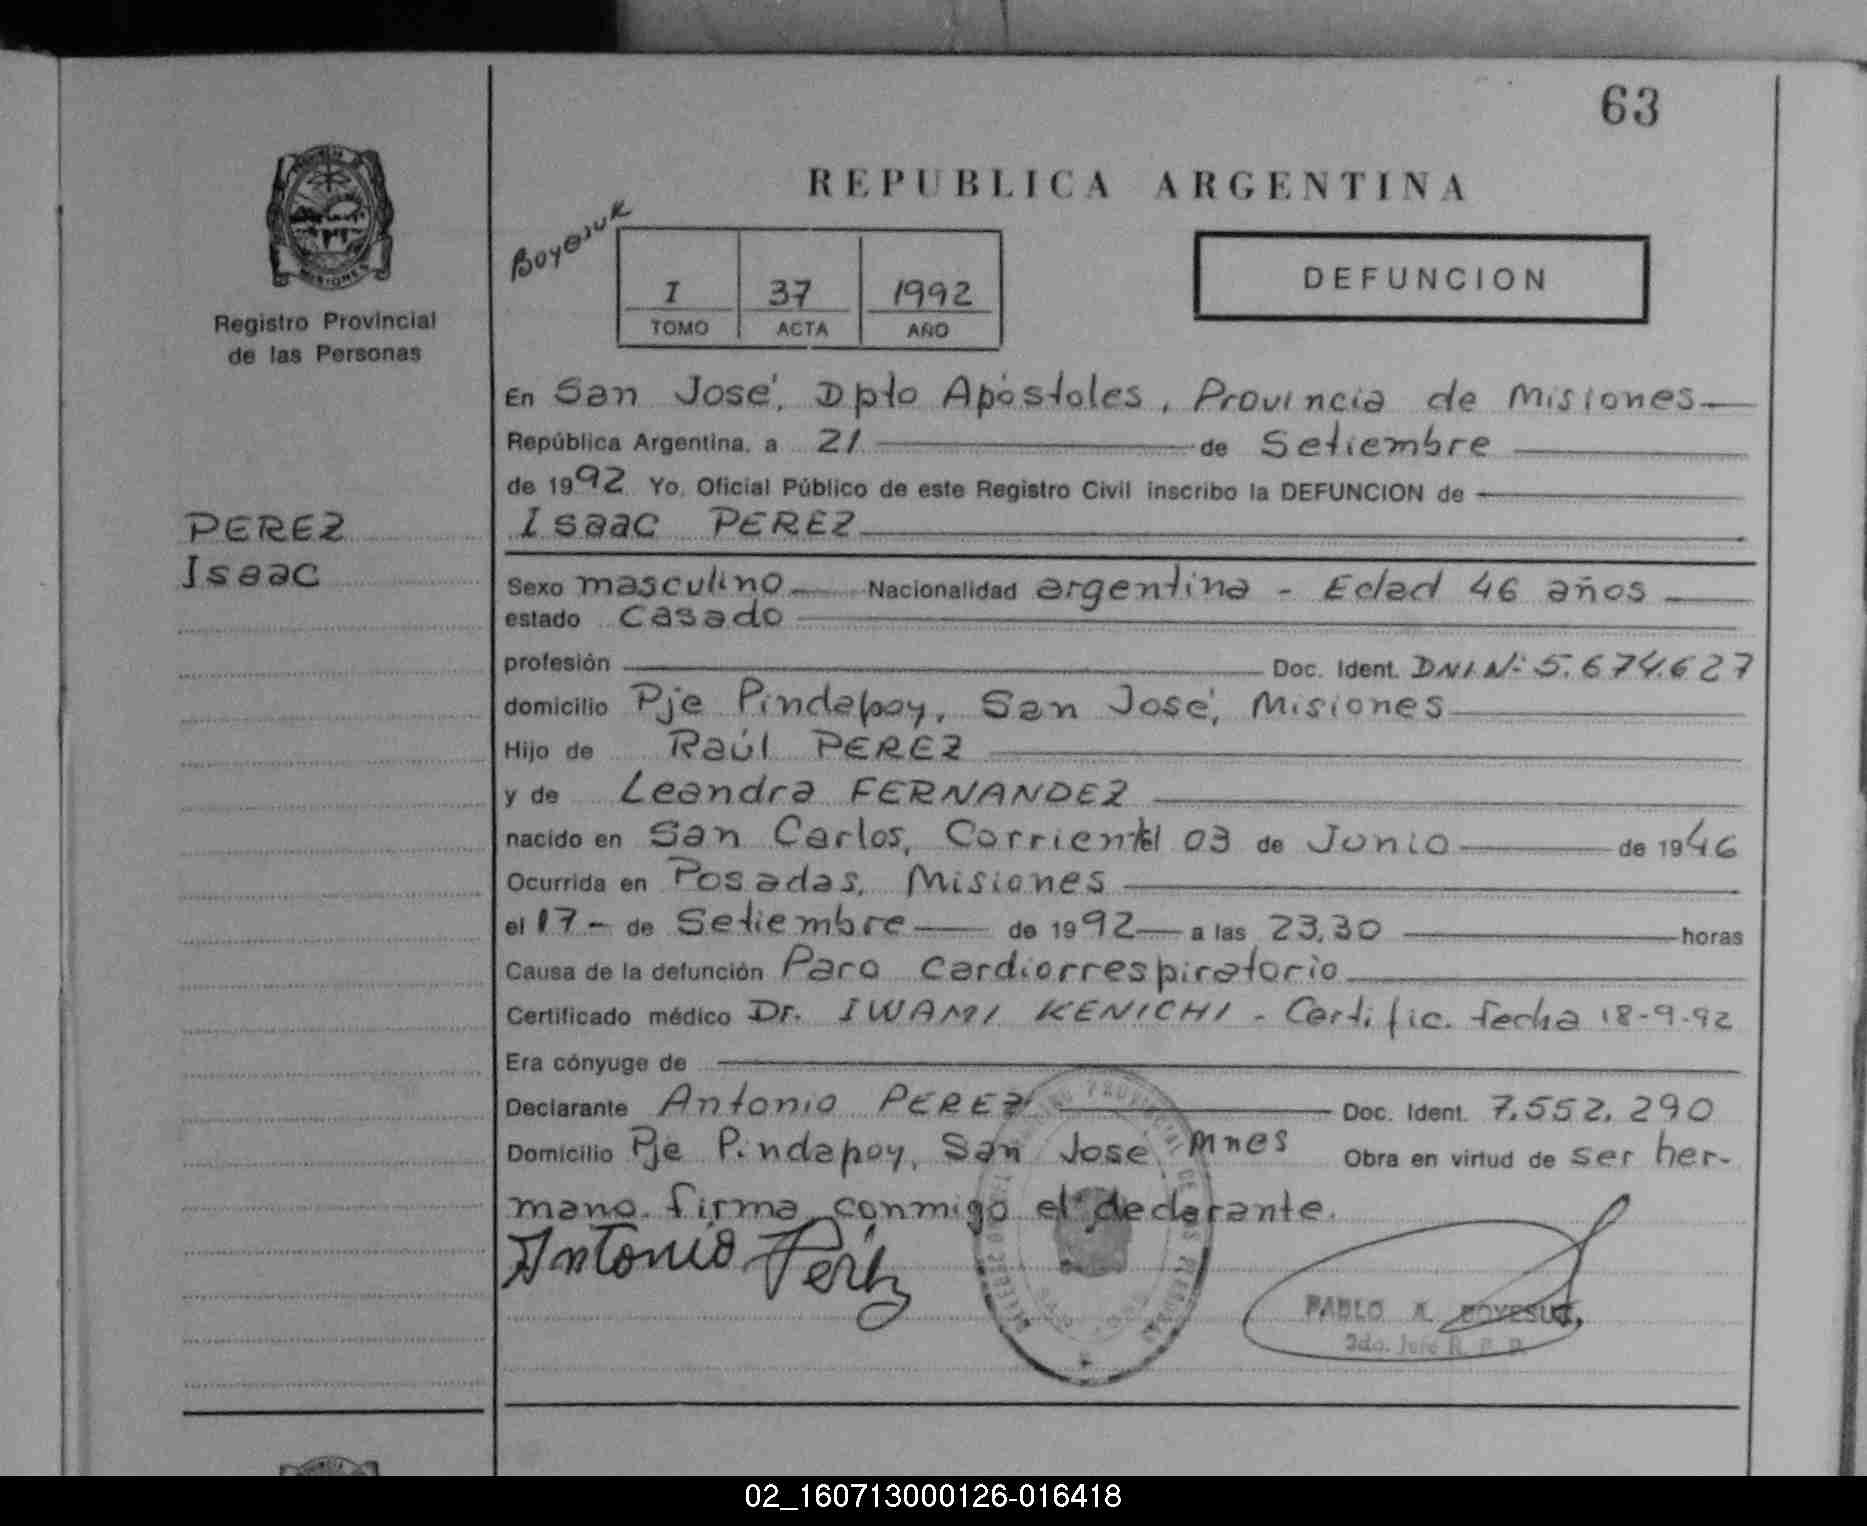 63
REPUBLICA ARGENTINA
Boyesuk
I 37 1992
TOMO ACTA AÑO
DEFUNCION
MISIONES
Registro Provincial
de las Personas
PEREZ
Isaac
En San José, Dpto Apóstoles, Provincia de Misiones
República Argentina, a 21 de Setiembre
de 1992 Yo, Oficial Público de este Registro Civil inscribo la DEFUNCION de
Isaac PEREZ
Sexo masculino Nacionalidad argentina - Edad 46 años
estado Casado
profesión Doc. Ident. DNI.Nº 5.674.627
domicilio Pje Pindapoy, San José, Misiones
Hijo de Raúl PEREZ
y de Leandra FERNANDEZ
nacido en San Carlos, el 03 de Junio de 1946
Ocurrida en Posadas, Misiones
el 17 - de Setiembre de 1992 a las 23,30 horas
Causa de la defunción Paro cardiorrespiratorio
Certificado médico Dr. IWAMI KENICHI - Certific. fecha 18-9-92
Era cónyuge de
Declarante Antonio PEREZ Doc. Ident. 7.552.290
Domicilio Pje Pindapoy, San José, Mnes Obra en virtud de ser her-
mano. firma conmigo el declarante.
Antonio Pérez
PABLO A. BOYESUK
2do. Jefe R. P. P.
02_160713000126-016418